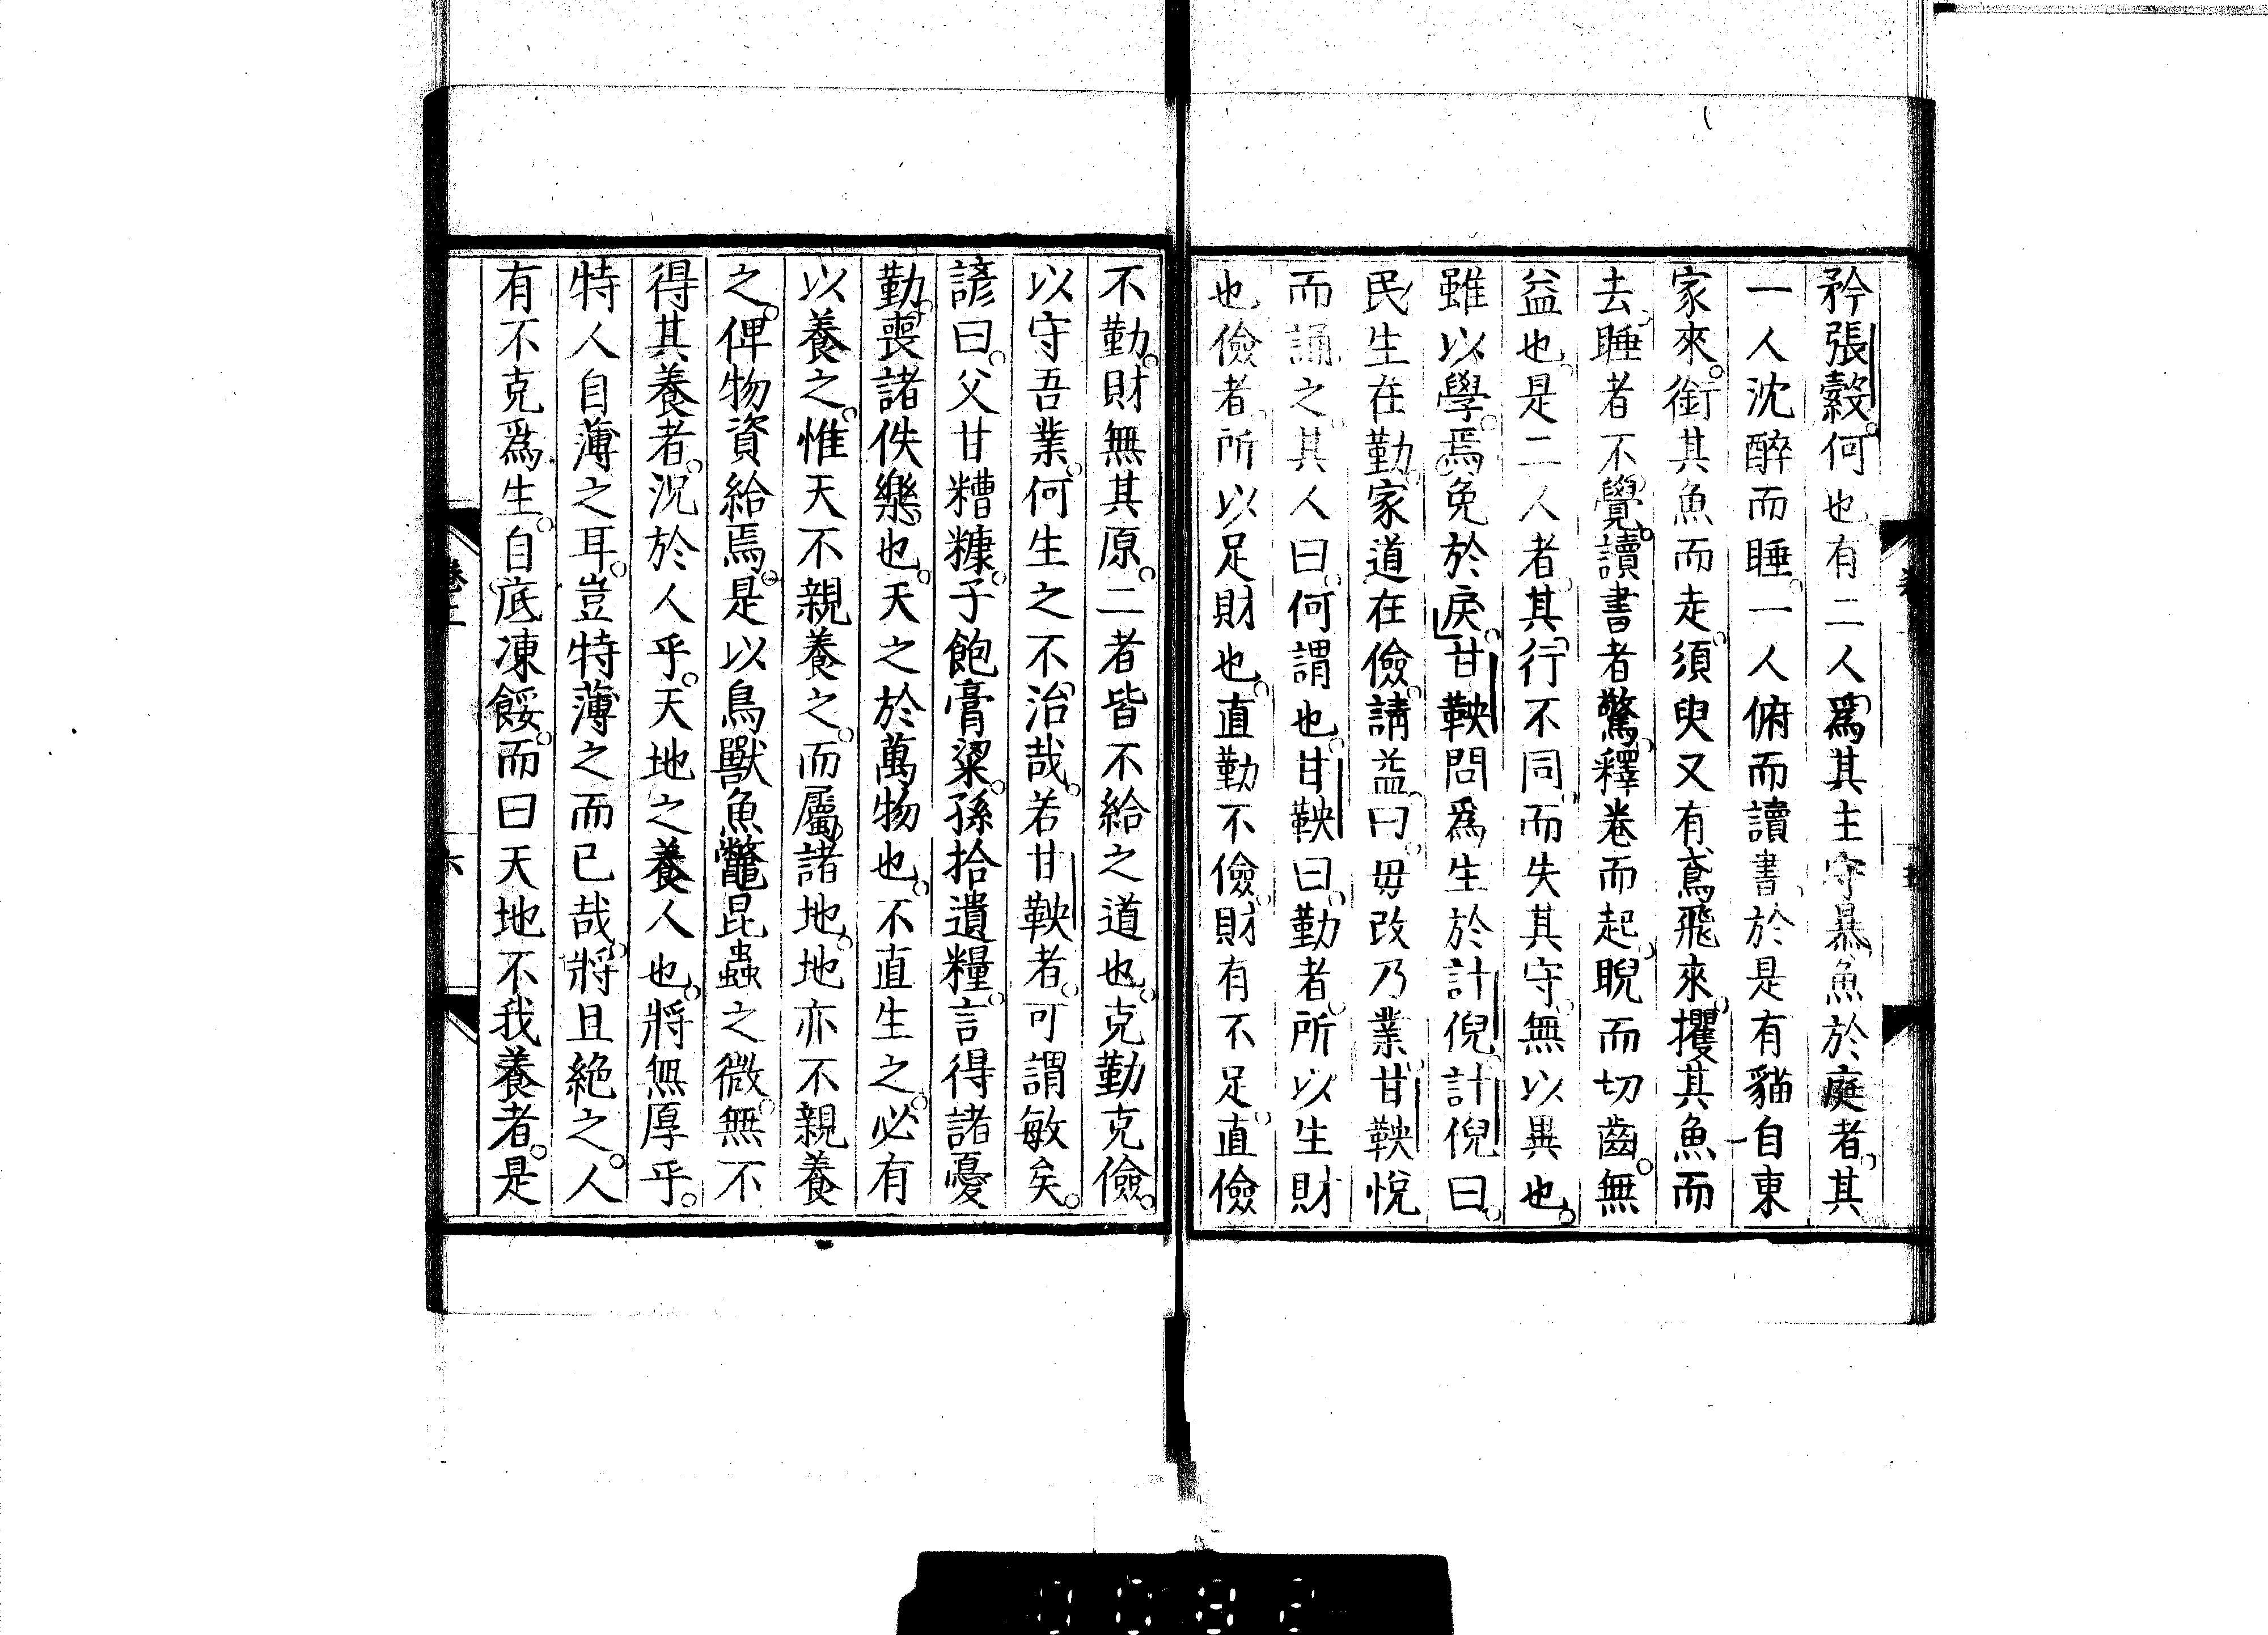 矜張瑴。何也有二人。爲其主守暴魚於庭者。其
一人沈醉而睡。一人俯而讀書。於是有貓自東
家來。銜其魚而走。須臾又有鳶飛來。攫其魚而
去。睡者不覺。讀書者驚。釋卷而起。睨而切齒。無
益也。是二人者。其行不同。而失其守。無以異也。
雖以學焉。免於戾。甘鞅問爲生於計倪。計倪曰。
民生在勤。家道在儉。請益。曰。毋改乃業。甘鞅悅
而誦之。其人曰。何謂也。甘鞅曰。勤者。所以生財
也。儉者。所以足財也。直勤不儉。財有不足。直儉
不勤。財無其原。二者皆不給之道也。克勤克儉。
以守吾業。何生之不治哉。若甘鞅者。可謂敏矣。
諺曰。父甘糟糠。子飽膏粱。孫拾遺糧。言得諸憂
勤。喪諸佚樂也。天之於萬物也。不直生之。必有
以養之。惟天不親養之。而屬諸地。地亦不親養
之。俾物資給焉。是以鳥獸魚鼈昆蟲之微。無不
得其養者。況於人乎。天地之養人也。將無厚乎。
特人自薄之耳。豈特薄之而已哉。將且絶之。人
有不克爲生。自底凍餒。而曰天地不我養者。是
六